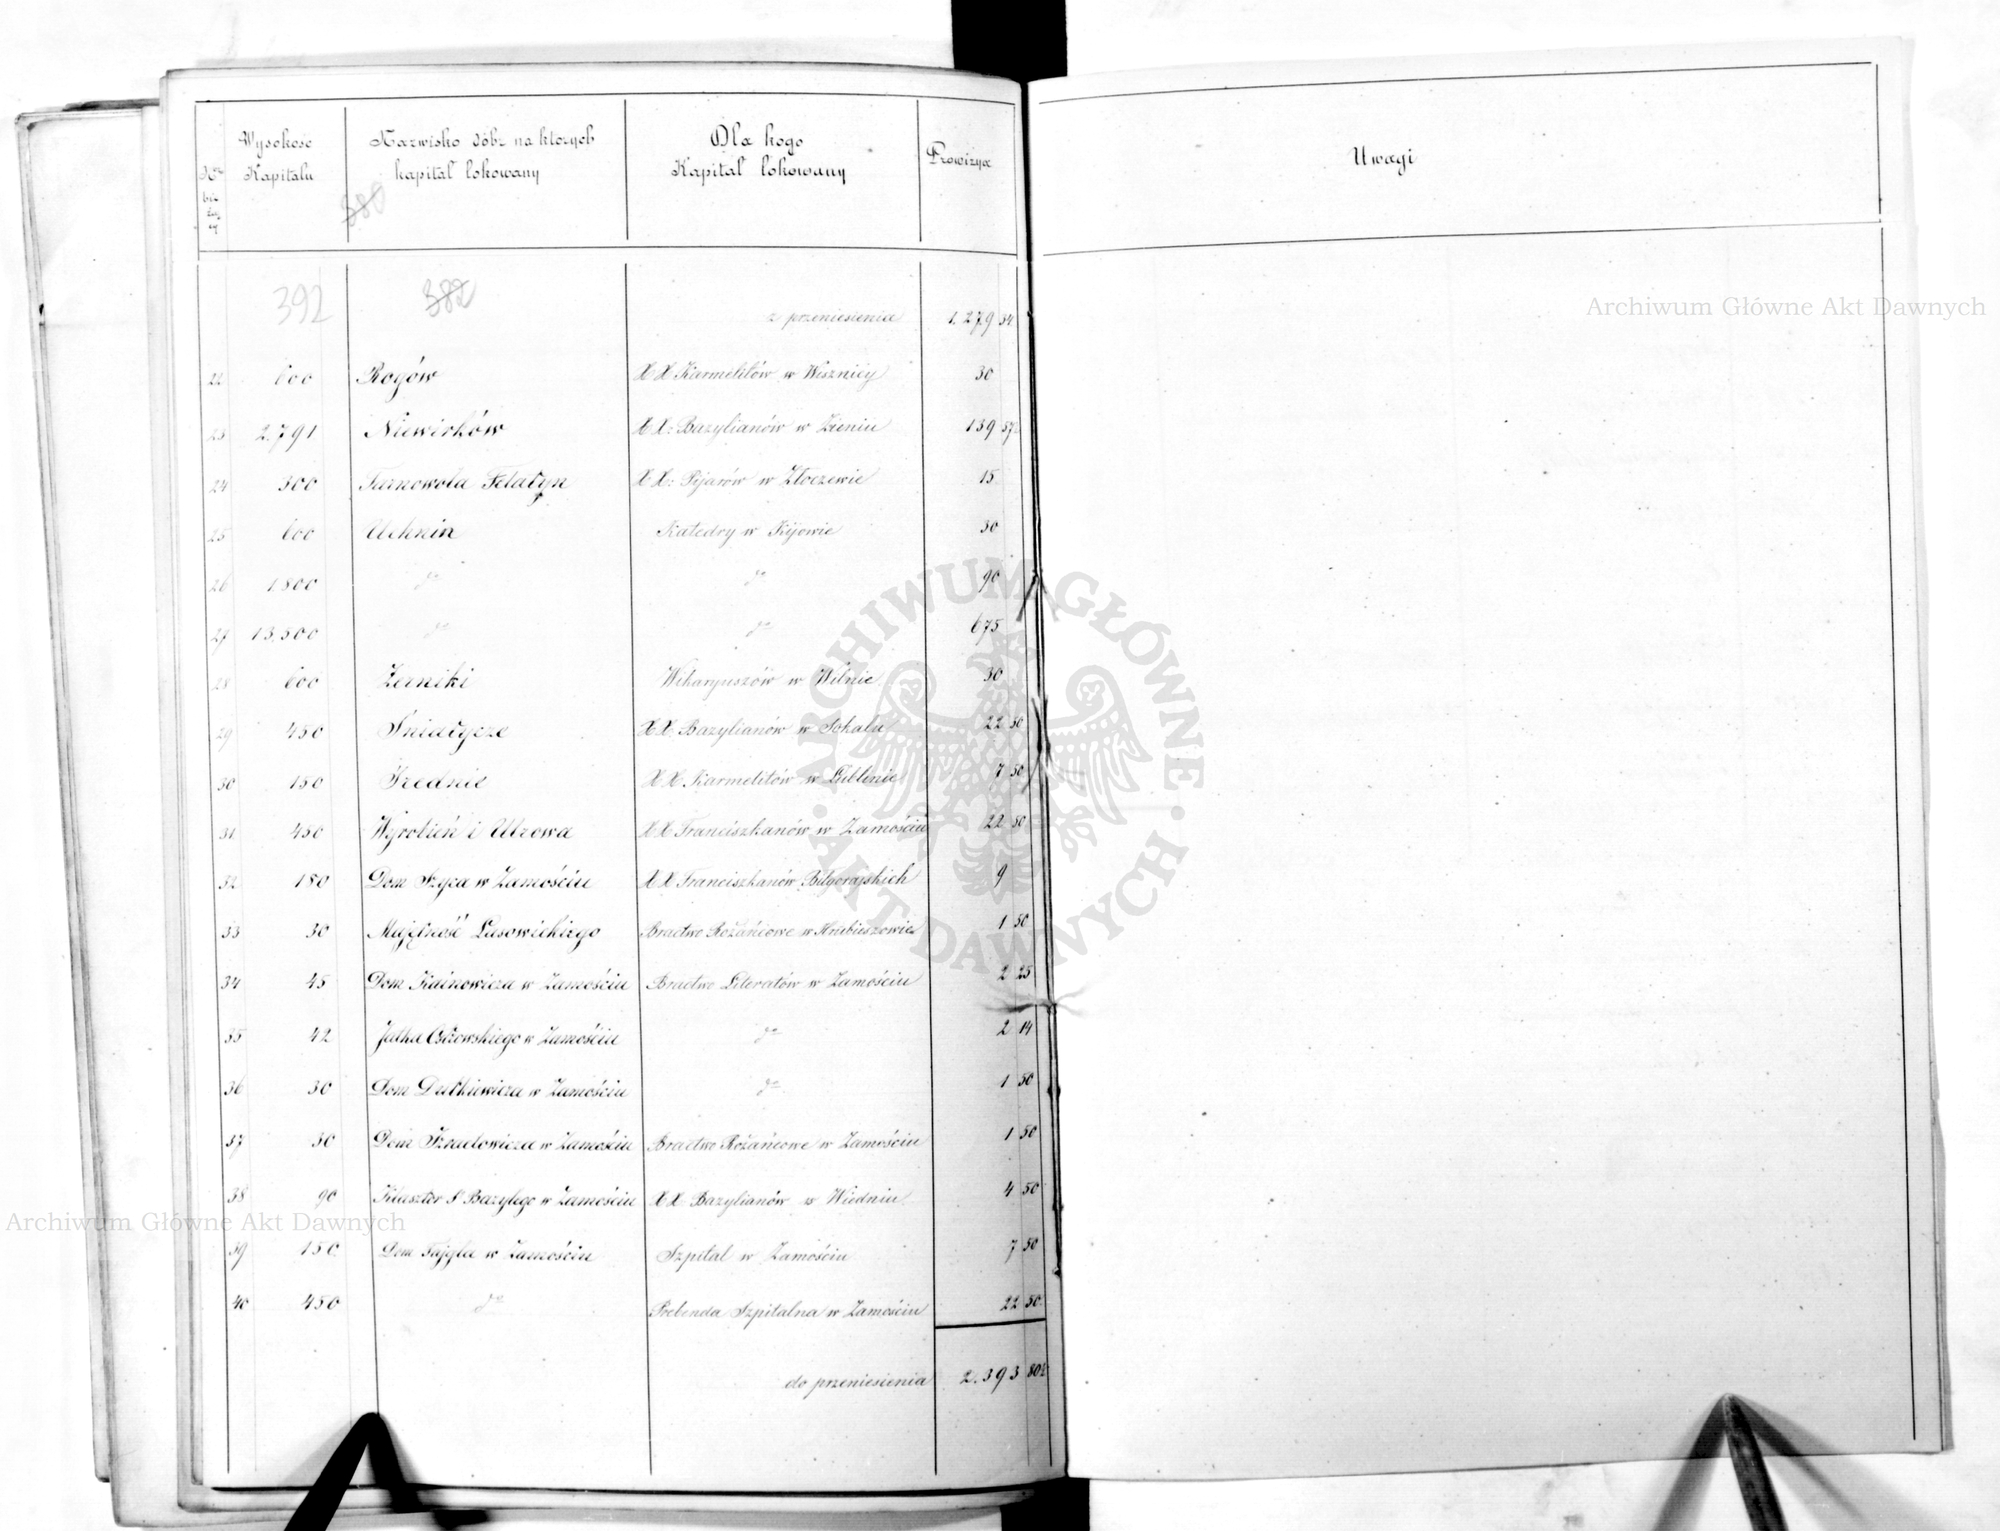 Nro bie żąc y
Wysokość Kapitału
Nazwisko dóbr na których kapitał lokowany
Dla kogo Kapitał lokowany
Prowizya
Uwagi
380
392 382
z przeniesienia 1.279 34
22 600 Rogów XX Karmelitów w Wisznicy 30
23 2.791 Niewirków XX: Bazylianów w 139 57½
24 300 Tarnowola Telatyn XX: Pijarów w Złoczewie 15
25 600 Uchnin Katedry w Kijowie 30
26 1.800 do do 90
27 13.500 do do 675
28 600 Zerniki Wikaryuszów w Wilnie 30
29 450 Śniatycze XX. Bazylianów w Sokalu 22 50
30 150 Srednie XX Karmelitów w Lublinie 7 50
31 450 XX Franciszkanów w Zamościu 22 50
32 180 Dom Szyca w Zamościu XX Franciszkanów Biłgorajskich 9
33 30 Majętność Lasowickiego Bractwo Różańcowe w Hrubieszowie 1 50
34 45 Dom w Zamościu Bractwo Literatów w Zamościu 2 25
35 42 Jatka Ostrowskiego w Zamościu do 2 14
36 30 Dom Dutkiewicza w Zamościu do 1 50
37 30 Dom w Zamościu Bractwo Różańcowe w Zamościu 1 50
38 90 Klasztor S Bazylego w Zamościu XX Bazylianów w Wiedniu 4 50
39 150 Dom Fajgla w Zamościu Szpital w Zamościu 7 50
40 450 do Prebenda Szpitalna w Zamościu 22 50
do przeniesienia 2.393 80½
Archiwum Główne Akt Dawnych
ARCHIWUM GŁÓWNE · AKT DAWNYCH ·
Archiwum Główne Akt Dawnych